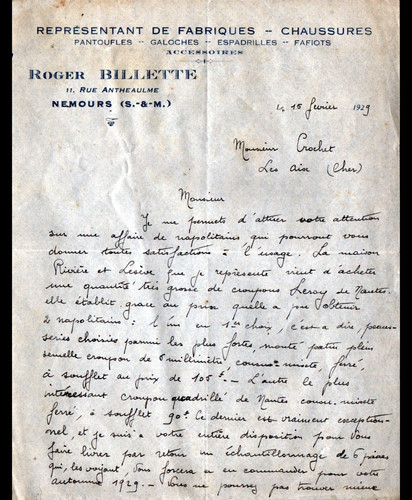 REPRÉSENTANT DE FABRIQUES -- CHAUSSURES
PANTOUFLES -- GALOCHES -- ESPADRILLES -- FAFIOTS
ACCESSOIRES
ROGER BILLETTE
11, RUE ANTHEAULME
NEMOURS (S.-&-M.)
le 15 février 1929
Monsieur Crochet
Les Aix (Cher)
Monsieur
Je me permets d'attirer votre attention
sur une affaire de napolitains qui pourront vous
donner toutes satisfaction à l'usage. La maison
Rivière et Lesive que je représente vient d'acheter
une quantité très grosse de croupons Leroy de Nantes.
elle établit, grace au prix quelle a pu obtenir
2 napolitains: l'un en 1er choix, c'est a dire, peaus-
series choisies parmi les plus fortes, monté patin plein
semelle croupon de 6 millimètre, ferré,
à soufflet au prix de 105f. - L'autre le plus
intéressant croupon quadrillé de Nantes
ferré, à soufflet 90f. Ce dernier est vraiment exception-
nel, et je suis a votre entière disposition pour vous
faire livrer par retour un échantillonnage de 6 paires
qui, les voyant, vous forcera a en commander pour votre
automne 1929. - Vous ne pourrez pas trouver mieux